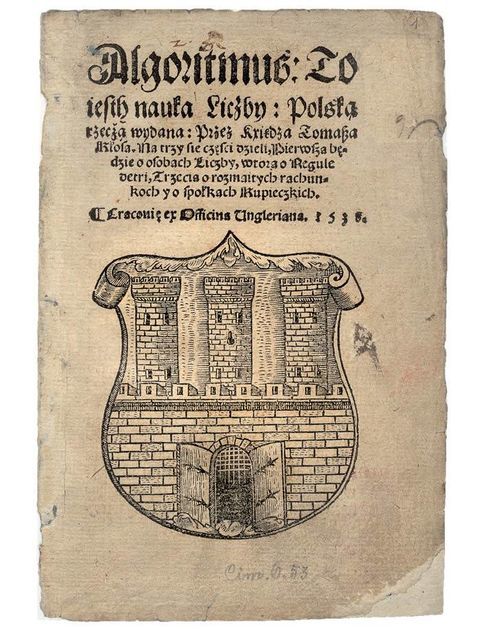 Algoritmus: To
iesth nauka Liczby: Polską
rzeczą wydana: Przez Kxiędza Tomasza
Kłosa. Na trzy sie części dzieli, Pierwsza bę-
dzie o osobach Liczby, wtora o Regule
detri, Trzecia o rozmaitych rachun-
koch y o społkach Kupieczkich.
¶ Cracovię ex Officina Ungleriana. 1538.
Cim. O. 53